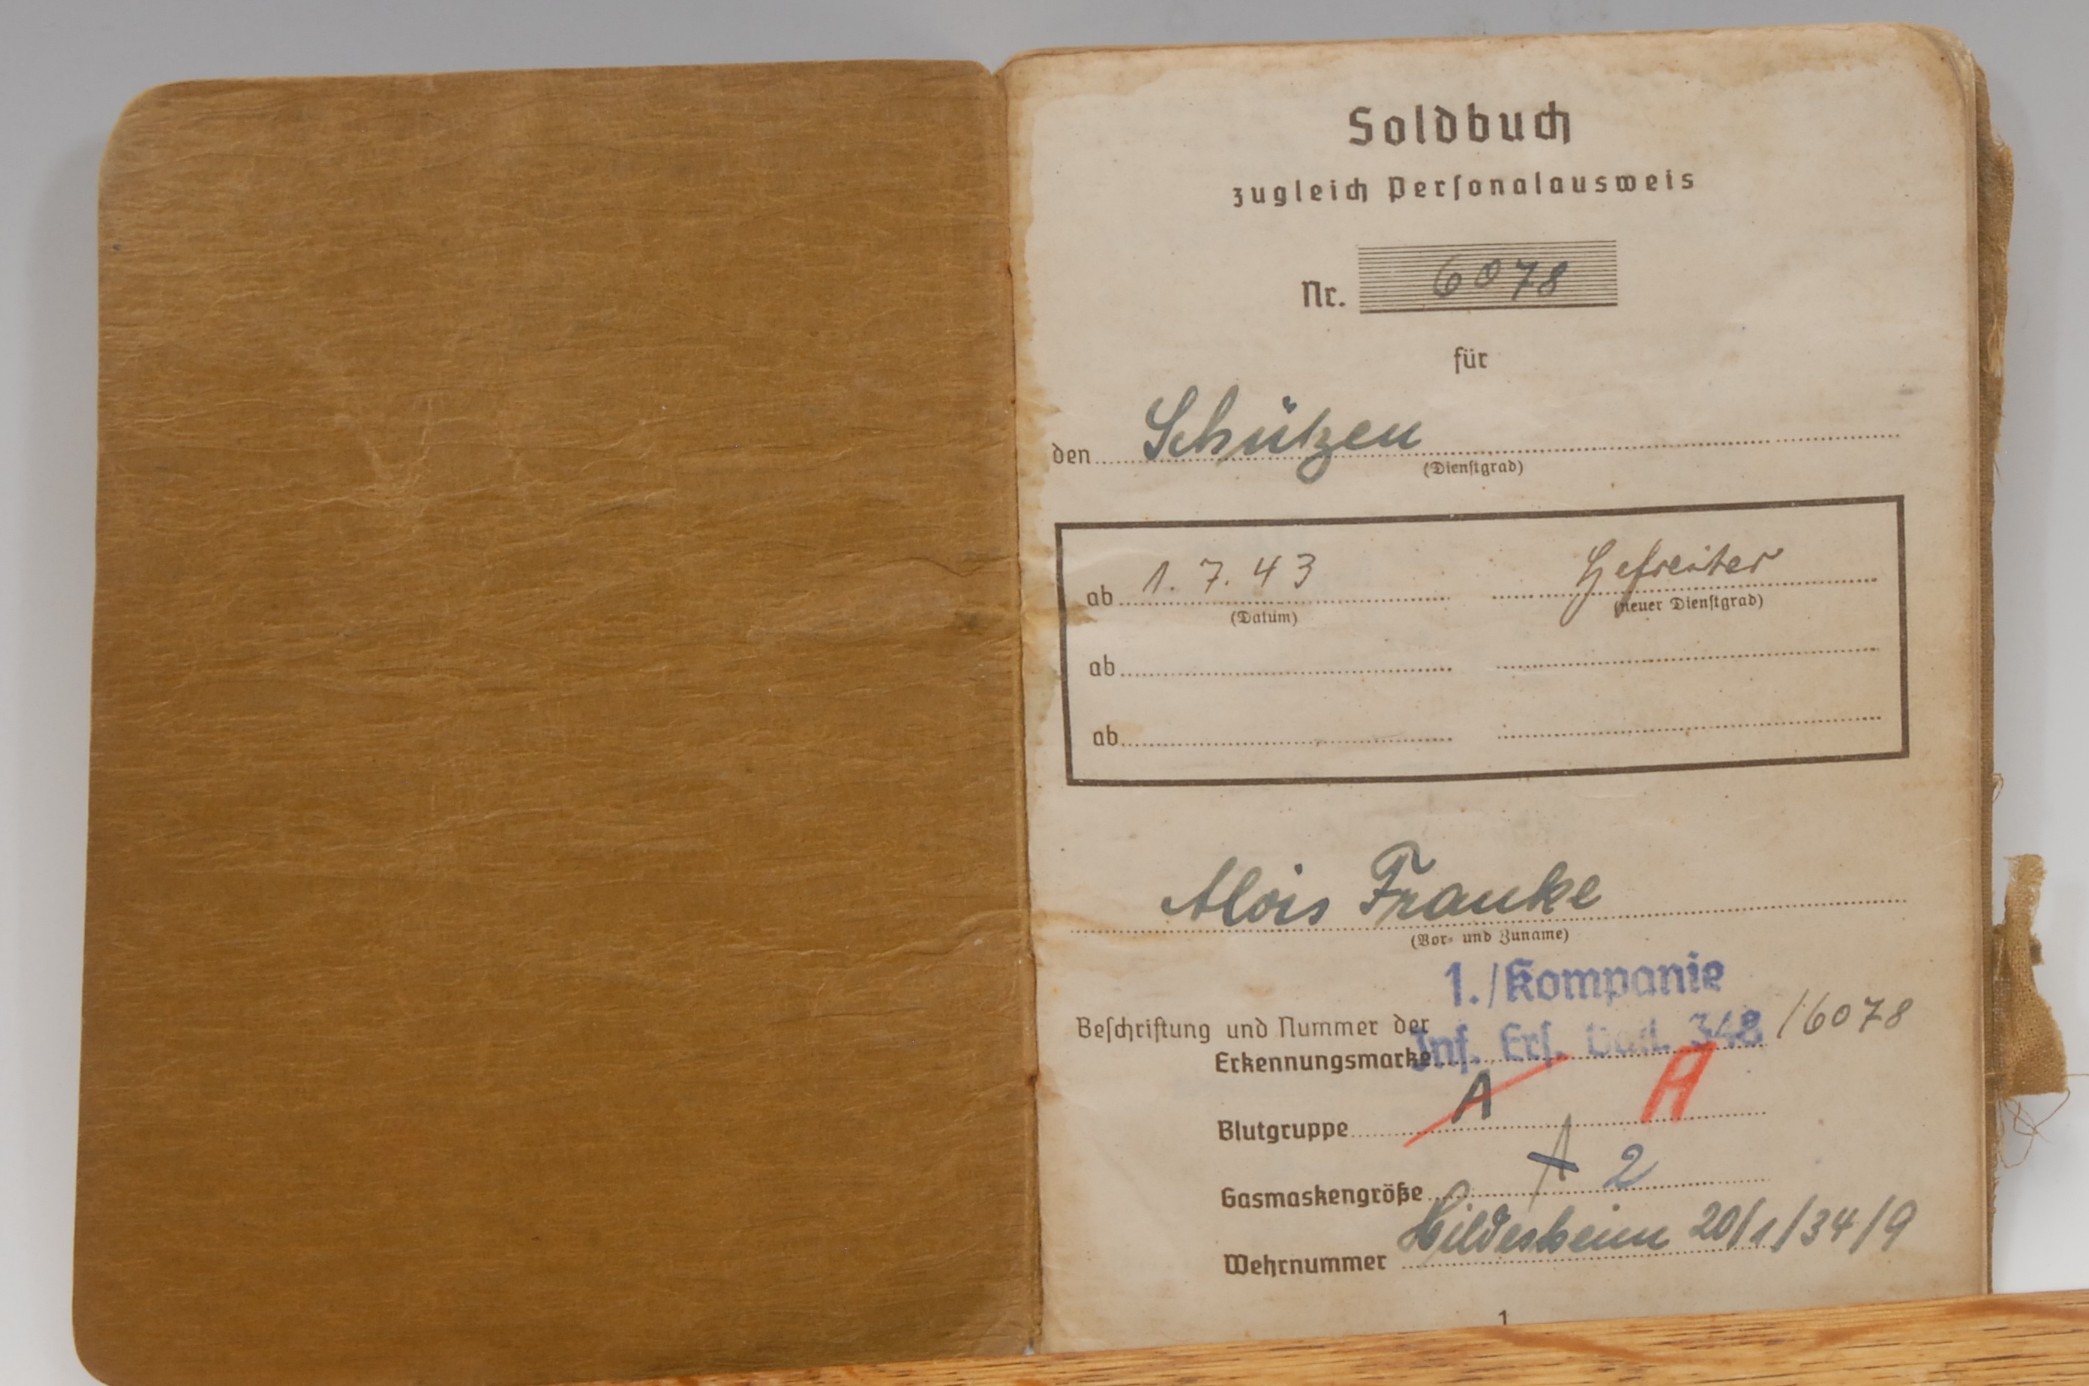 Soldbuch
zugleich Personalausweis
Nr. 6078
für
den Schützen
(Dienstgrad)
ab 1.7.43 Gefreiter
(Datum) (neuer Dienstgrad)
ab
ab
Alois Franke
(Vor- und Zuname)
1./Kompanie
Beschriftung und Nummer der Inf. Ers. Batl. 348 /6078
Erkennungsmarke
Blutgruppe A A
Gasmaskengröße 1 2
Wehrnummer Hildesheim 20/1/34/9
1